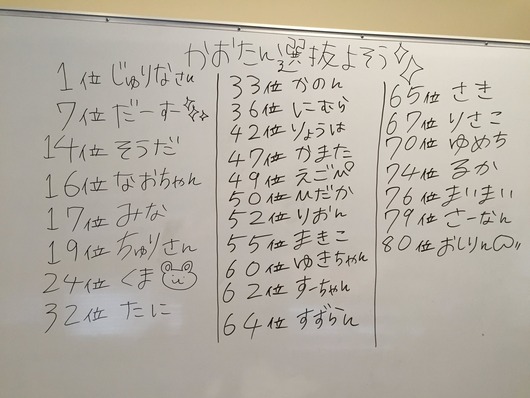 かおたん選抜よそう
1位 じゅりなさん
7位 だーすー
14位 そうだ
16位 なおちゃん
17位 みな
19位 ちゅりさん
24位 くま
32位 たに
33位 かのん
36位 にこむら
42位 りょうは
47位 かまた
49位 えごぴ
50位 ひだか
52位 りおん
55位 まきこ
60位 ゆきちゃん
62位 すーちゃん
64位 すずらん
65位 さき
67位 りさこ
70位 ゆめち
74位 るか
76位 まいまい
79位 さーなん
80位 おしりん